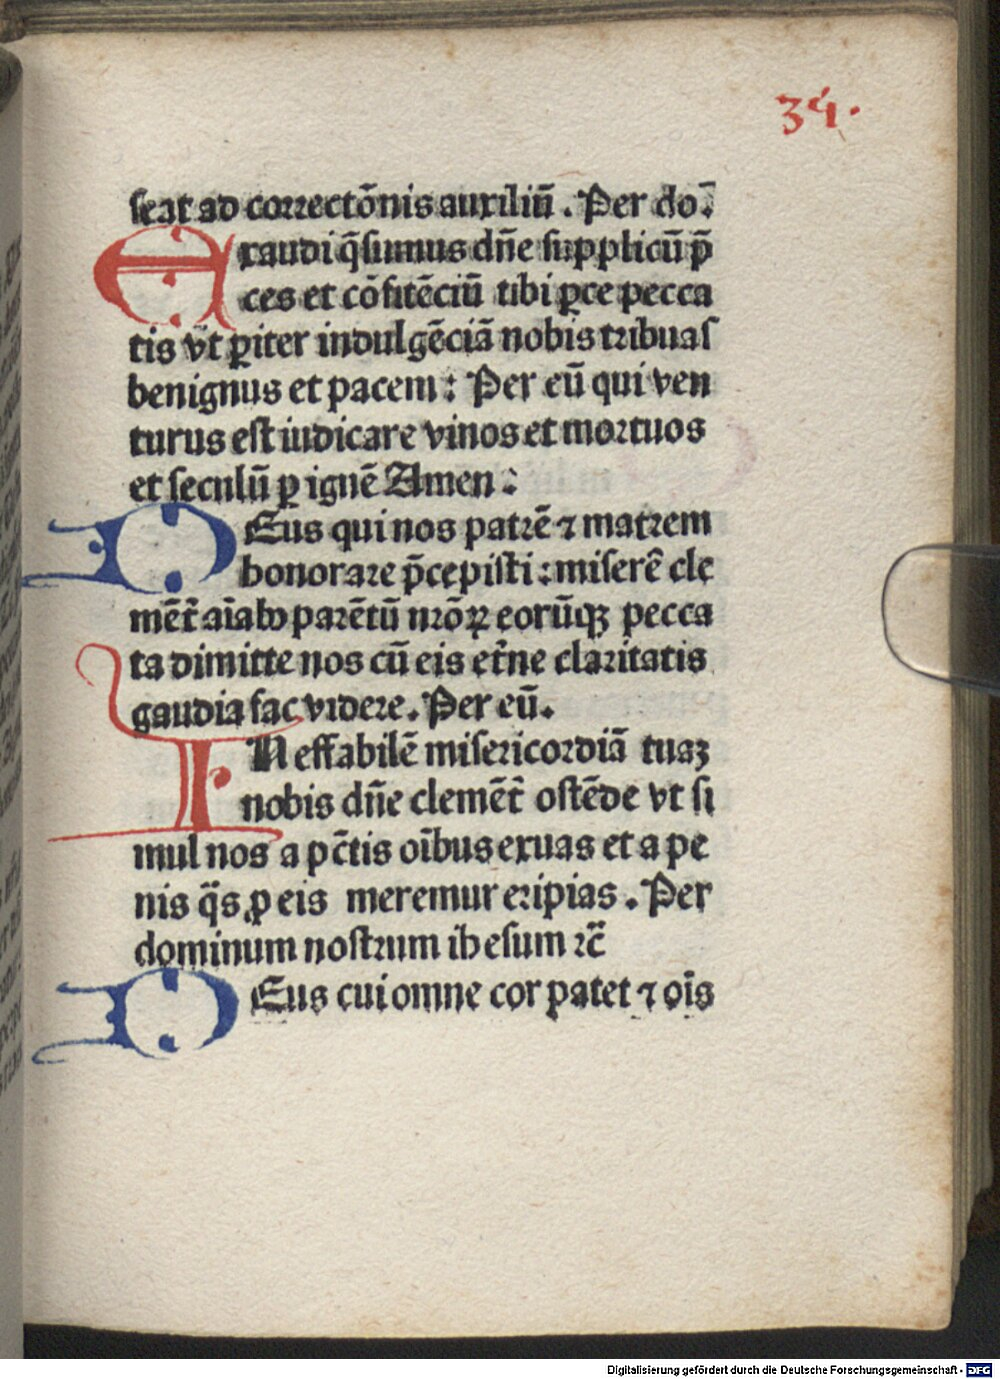 34.
seat ad correctōnis auxiliū. Per do.̄
Exaudi q̄sumus dn̄e supplicū p̄
ces et cōfitēciū tibi ꝑce pecca
tis vt ꝑiter indulgēciā nobis tribuas
benignus et pacem: Per eū qui ven
turus est iudicare vinos et mortuos
et seculū ꝑ ignē Amen:
DEus qui nos patrē ⁊ matrem
honorare p̄cepisti: miserē cle
mēt̄ aīabꝰ parētū nrōꝝ eorūqꝫ pecca
ta dimitte nos cū eis et̄ne claritatis
gaudia fac videre. Per eū.
IN effabilē misericordiā tuaꝫ
nobis dn̄e clemēt̄ ostēde vt si
mul nos a pc̄tis oībus exuas et a pe
nis q̄s ꝓ eis meremur eripias. Per
dominum nostrum ihesum ⁊c̄
DEus cui omne cor patet ⁊ oīs
Digitalisierung gefördert durch die Deutsche Forschungsgemeinschaft - DFG